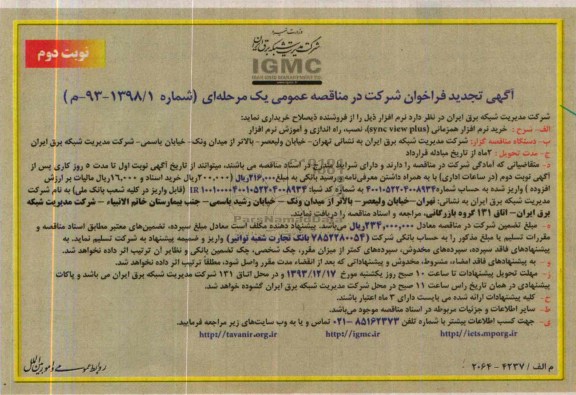 نوبت دوم
وزارت نیرو
شرکت مدیریت شبکه برق ایران
IGMC
آگهی تجدید فراخوان شرکت در مناقصه عمومی یک مرحله‌ای (شماره ۱۳۹۸/۱-۹۳-م)
شرکت مدیریت شبکه برق ایران در نظر دارد نرم افزار ذیل را از فروشنده ذیصلاح خریداری نماید:
الف- شرح : خرید نرم افزار همزمانی (sync view plus)، نصب، راه اندازی و آموزش نرم افزار
ب- دستگاه مناقصه گزار: شرکت مدیریت شبکه برق ایران به نشانی تهران- خیابان ولیعصر- بالاتر از میدان ونک- خیابان یاسمی- شرکت مدیریت شبکه برق ایران
ج- مدت تحویل : ۲ماه از تاریخ مبادله قرارداد
د - متقاضیانی که آمادگی شرکت در مناقصه را دارند و دارای شرایط مندرج در اسناد مناقصه می باشند، میتوانند از تاریخ آگهی نوبت اول تا مدت ۵ روز کاری پس از
آگهی نوبت دوم (در ساعات اداری) با به همراه داشتن معرفی‌نامه و رسید بانکی به مبلغ۲۱۶,۰۰۰ریال (۲۰۰,۰۰۰ریال خرید اسناد و ۱۶,۰۰۰ریال مالیات بر ارزش
افزوده ) واریز شده به حساب شماره۴۰۰۱۰۵۲۲۰۴۰۰۸۹۳۴ (قابل واریز در کلیه شعب بانک ملی) به نام شرکت
مدیریت شبکه برق ایران به نشانی: تهران- خیابان ولیعصر – بالاتر از میدان ونک – خیابان رشید یاسمی- جنب بیمارستان خاتم الانبیاء – شرکت مدیریت شبکه
برق ایران- اتاق ۱۳۱ گروه بازرگانی، مراجعه و اسناد مناقصه را دریافت نمایند.
ه - مبلغ تضمین شرکت در مناقصه معادل ۲۳۴,۰۰۰,۰۰۰ریال می‌باشد. پیشنهاد دهنده مکلف است معادل مبلغ سپرده، تضمین‌های معتبر مطابق اسناد مناقصه و
مقررات تسلیم یا مبلغ مذکور را به حساب بانکی شرکت (۷۸۵۲۲۸۰۰۵۳ با بانک تجارت شعبه توانیر) واریز و ضمیمه پیشنهاد به شرکت تسلیم نماید. به
پیشنهادهای فاقد سپرده، سپرده‌های مخدوش، سپرده‌های کمتر از میزان مقرر، چک شخصی، چک تضمین بانکی و نظایر آن ترتیب اثر داده نخواهد شد.
و- به پیشنهادهای فاقد امضاء، مشروط، مخدوش و پیشنهاداتی که بعد از انقضاء مدت مقرر واصل شود، مطلقاً ترتیب اثر داده نخواهد شد.
ز- مهلت تحویل پیشنهادات تا ساعت ۱۰ صبح روز یکشنبه مورخ ۱۳۹۳/۱۲/۱۷ و در محل اتاق ۱۳۱ شرکت مدیریت شبکه برق ایران می باشد و پاکات
پیشنهادی در همان تاریخ راس ساعت ۱۱ صبح در محل شرکت مدیریت شبکه برق ایران گشوده خواهد شد.
ح- کلیه پیشنهادات ارائه شده می بایست دارای ۳ ماه اعتبار باشند.
ط- سایر اطلاعات و جزئیات مربوطه در اسناد مناقصه موجود می‌باشد.
ی- جهت کسب اطلاعات بیشتر با شماره تلفن ۸۵۱۶۲۳۷۳-۰۲۱ تماس و یا به وب سایت‌های زیر مراجعه فرمایید.
http://iets.mporg.ir http://igmc.ir http://tavanir.org.ir
م الف / ۴۲۳۷ - ۲۰۶۴
روابط عمومی و امور بین الملل